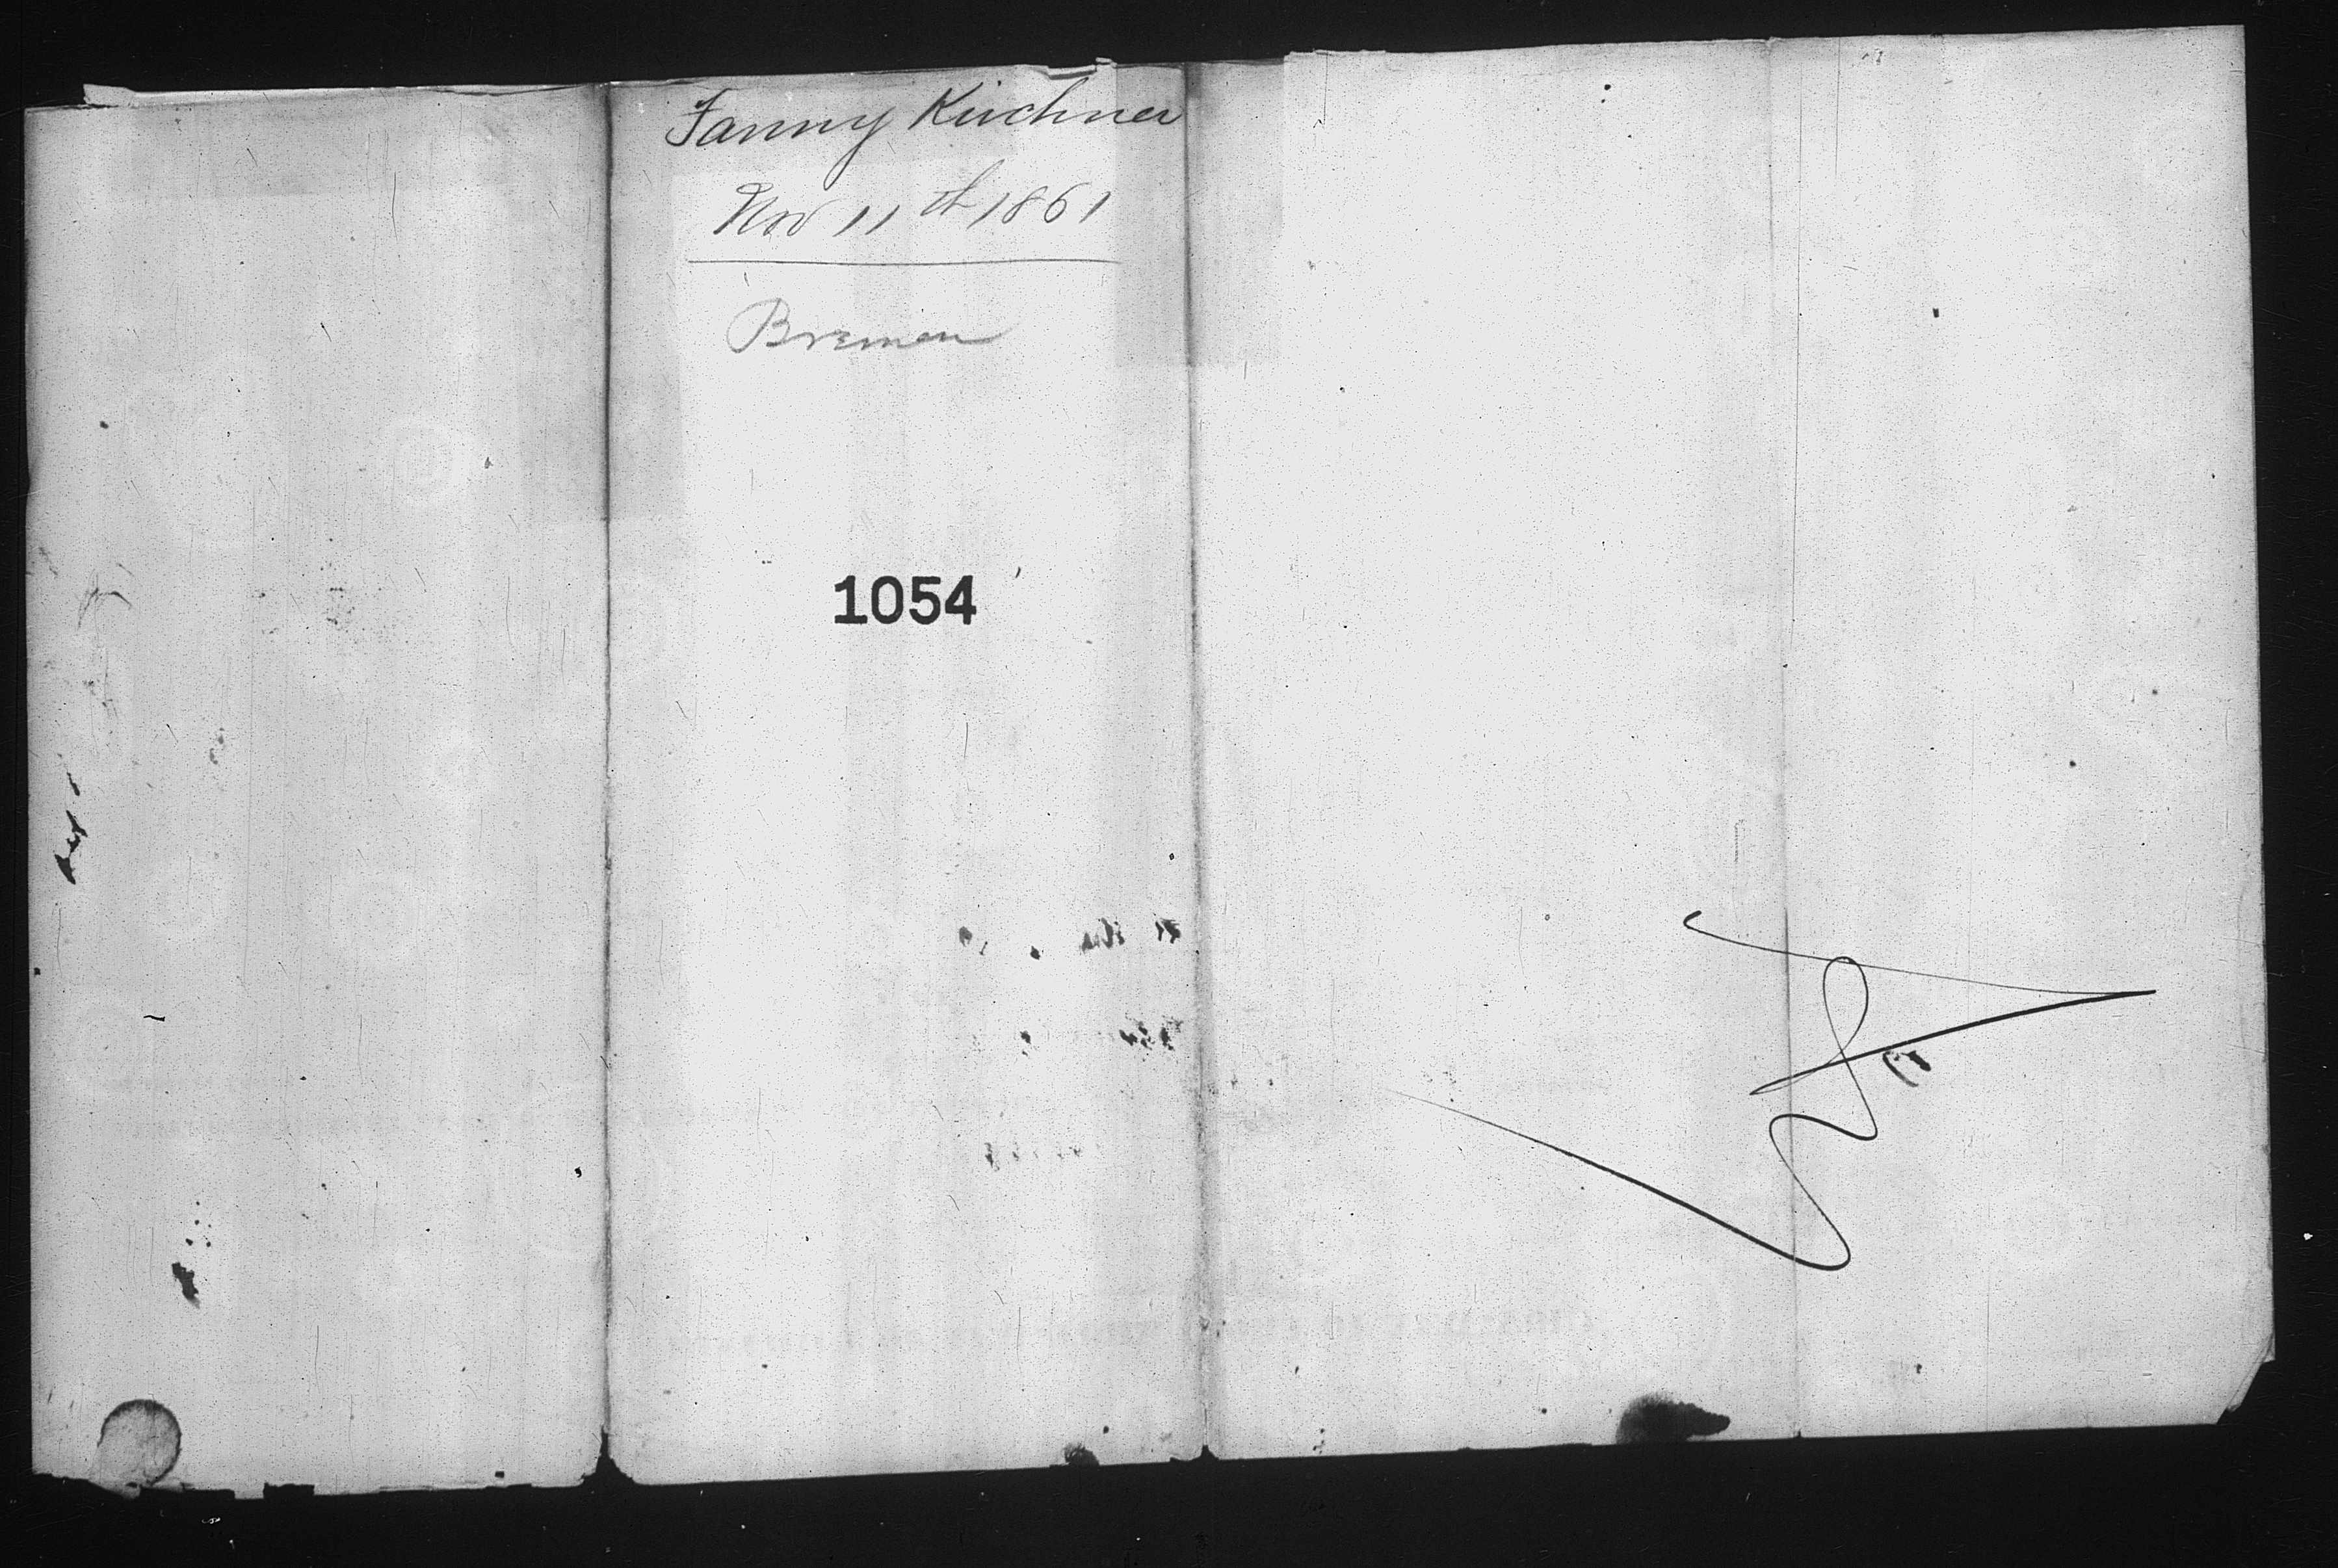 Fanny Kirchner
Nov 11th 1861
Bremen
1054